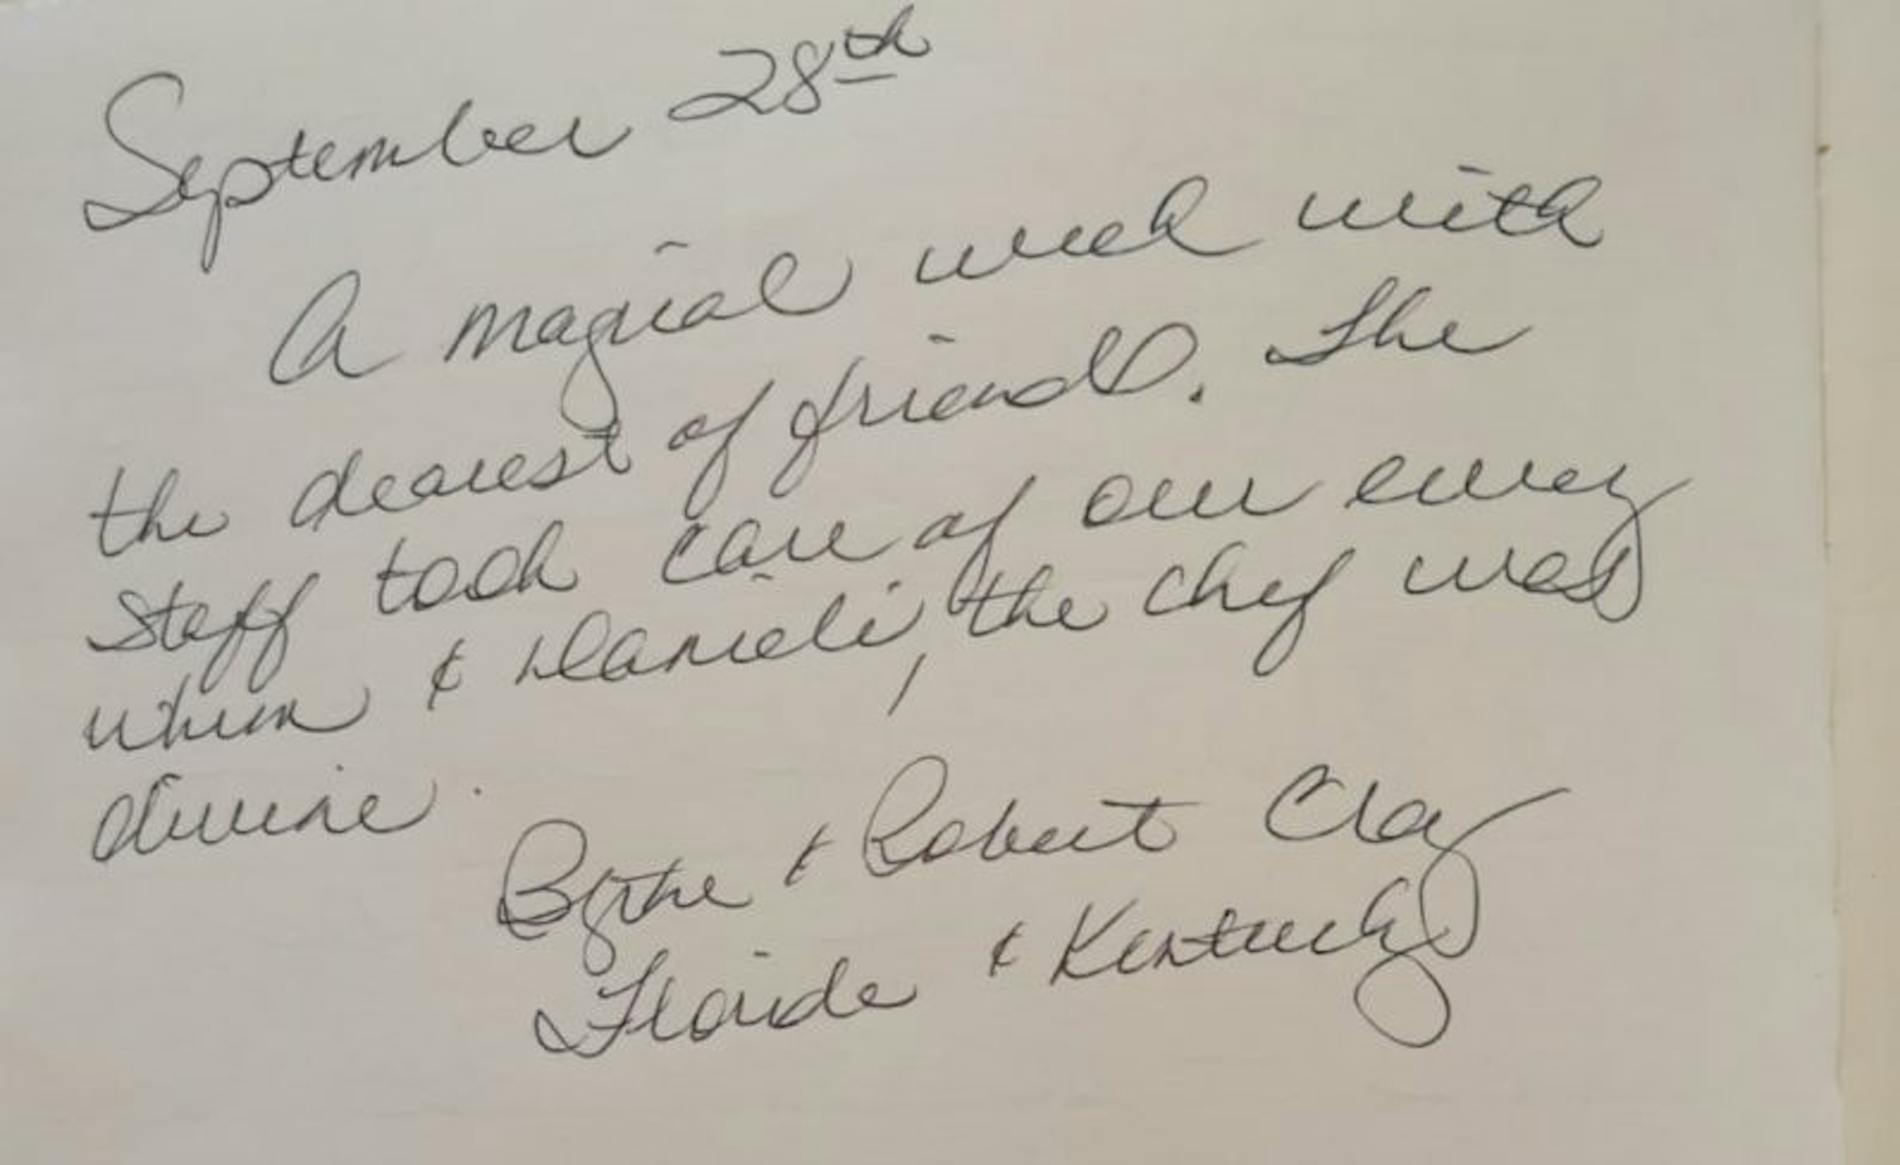 September 28th
A magical week with
the dearest of friends. The
staff took care of our every
whim & Danieli, the chef was
divine.
Blythe & Robert Clay
Florida & Kentucky